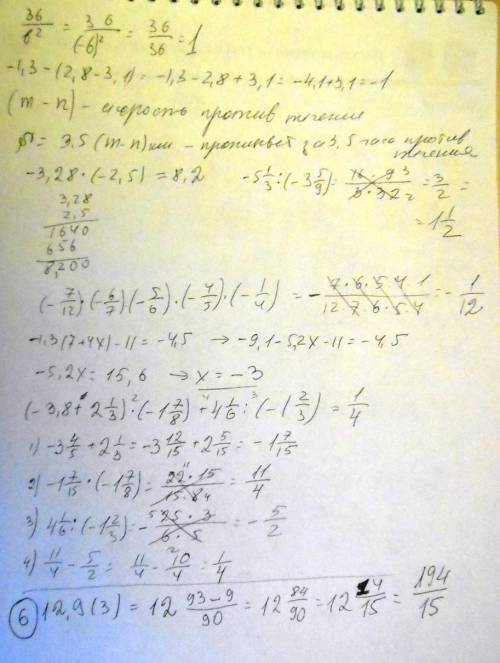 36/b² = 36/(-6)² = 36/36 = 1
-1,3-(2,8-3,1)=-1,3-2,8+3,1=-4,1+3,1=-1
(m-n) - скорость против течения
S = 3,5(m-n)км - проплывет за 3,5 часа против течения
-3,28·(-2,5)=8,2
3,28
2,5
1640
656
8,200
-5 1/3:(-3 5/9)= 16·9 3/3·32 2 = 3/2 =
= 1 1/2
(-7/12)·(-6/7)(-5/6)·(-4/5)·(-1/4) = - 7·6·5·4·1/12·7·6·5·4 = -1/12
-1,3(7+4x)-11=-4,5 → -9,1-5,2x-11=-4,5
-5,2x=15,6 → x=-3
(-3,8+2 1/3)·(-1 7/8)+4 1/6:(-1 2/3)=1/4
1) -3 4/5+2 1/3=-3 12/15+2 5/15=-1 7/15
2) -1 7/15·(-1 7/8)= 22 11·15/15·8 4 = 11/4
3) 4 1/6:(-1 2/3)=- 5 25·3/6·5 = -5/2
4) 11/4-5/2=11/4-10/4=1/4
6 12,9(3) = 12 93-9/90 = 12 84/90 = 12 14/15 = 194/15